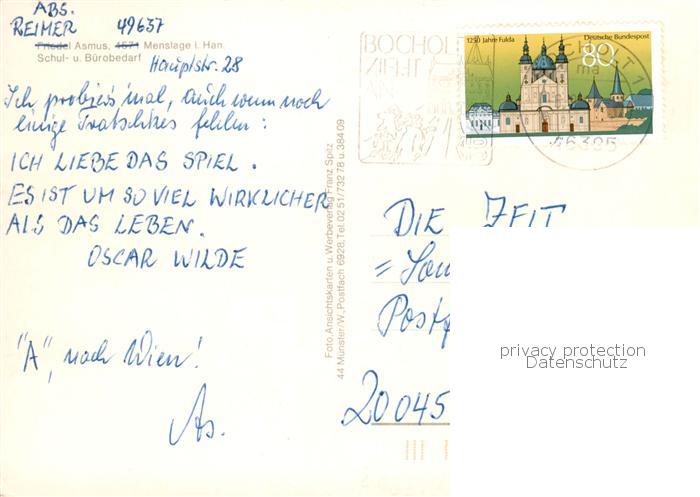 ABS.
REIMER 49637
Friedel Asmus, 4571 Menslage i. Han.
Schul- u. Bürobedarf
Hauptstr. 28
Ich probier's mal, auch wenn noch
einige Tratschkes fehlen:
ICH LIEBE DAS SPIEL.
ES IST UM SO VIEL WIRKLICHER
ALS DAS LEBEN.
OSCAR WILDE
"A", nach Wien!
As.
Foto, Ansichtskarten u. Werbeverlag Franz Spitz
44 Münster/W., Postfach 6928, Tel. 0251/73278 u. 38409
BOCHOL
1250 Jahre Fulda
Deutsche Bundespost
80
BOCHOLT 1
ma
46395
DIE ZEIT
Postf
20045
privacy protection
Datenschutz